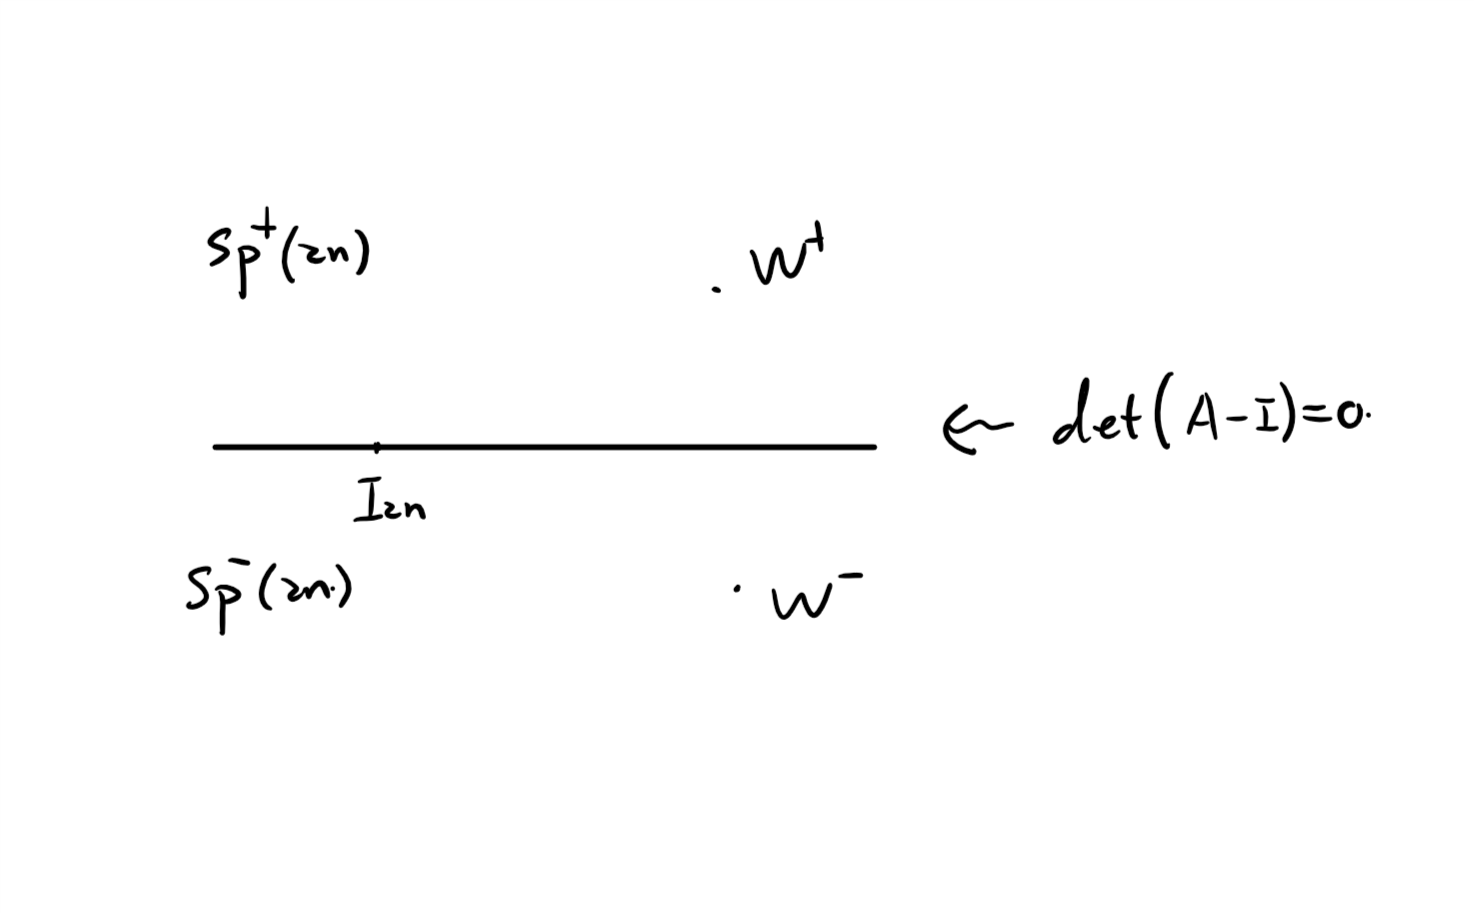 Sp⁺(2n)
· W⁺
← det(A-I)=0.
I₂ₙ
Sp⁻(2n)
· W⁻